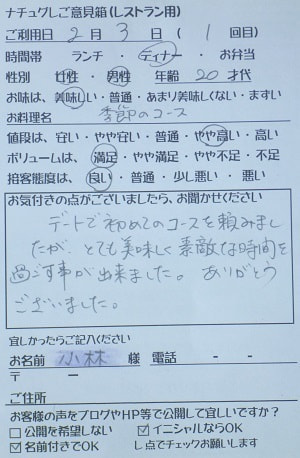 ナチュグレご意見箱(レストラン用)
ご利用日 2 月 3 日 ( 1 回目)
時間帯 ランチ ・ ディナー ・ お弁当
性別 女性 ・ 男性 年齢 20 才代
お味は、美味しい・普通・あまり美味しくない・まずい
お料理名 季節のコース
値段は、安い・やや安い・普通・やや高い・高い
ボリュームは、満足・やや満足・やや不足・不足
接客態度は、良い ・ 普通 ・ 少し悪い ・ 悪い
お気付きの点がございましたら、お聞かせください
デートで初めてのコースを頼みまし
たが、とても美味しく素敵な時間を
過ごす事が出来ました。ありがとう
ございました。
宜しかったらご記入ください
お名前 小林 様 電話 - -
〒 ー
ご住所
お客様の声をブログやHP等で公開して宜しいですか?
□ 公開を希望しない ☑ イニシャルならOK
☑ 名前付きでOK レ点でチェックお願いします